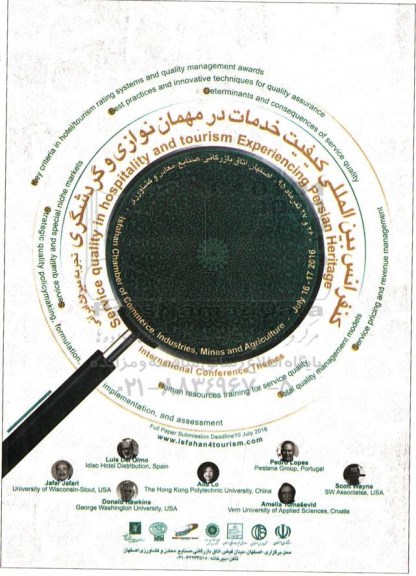 Key criteria in hotel/tourism rating systems and quality management awards
Best practices and innovative techniques for quality assurance
Determinants and consequences of service quality
کنفرانس بین المللی کیفیت خدمات در مهمان نوازی و گردشگری
Service quality in hospitality and tourism Experiencing Persian Heritage
اصفهان اتاق بازرگانی صنایع معادن و کشاورزی
Isfahan Chamber of Commerce, Industries, Mines and Agriculture
July 16-17 2016
Service quality and special niche markets
Strategic quality policymaking, formulation,
implementation, and assessment
Service pricing and revenue management
Total quality management models
Human resources training for service quality
International Conference Themes
۰۲۱-۸۸۳۴۹۶۷۰-۵
Full Paper Submission Deadline10 July 2016
www.isfahan4tourism.com
Luis Del Olmo
Idiso Hotel Distribution, Spain
Pedro Lopes
Pestana Group, Portugal
Jafar Jafari
University of Wisconsin-Stout, USA
Ada Lo
The Hong Kong Polytechnic University, China
Scott Wayne
SW Associates, USA
Donald Hawkins
George Washington University, USA
Amalia Tomašević
Vern University of Applied Sciences, Croatia
محل برگزاری: اصفهان، میدان فیض، اتاق بازرگانی، صنایع، معادن و کشاورزی اصفهان